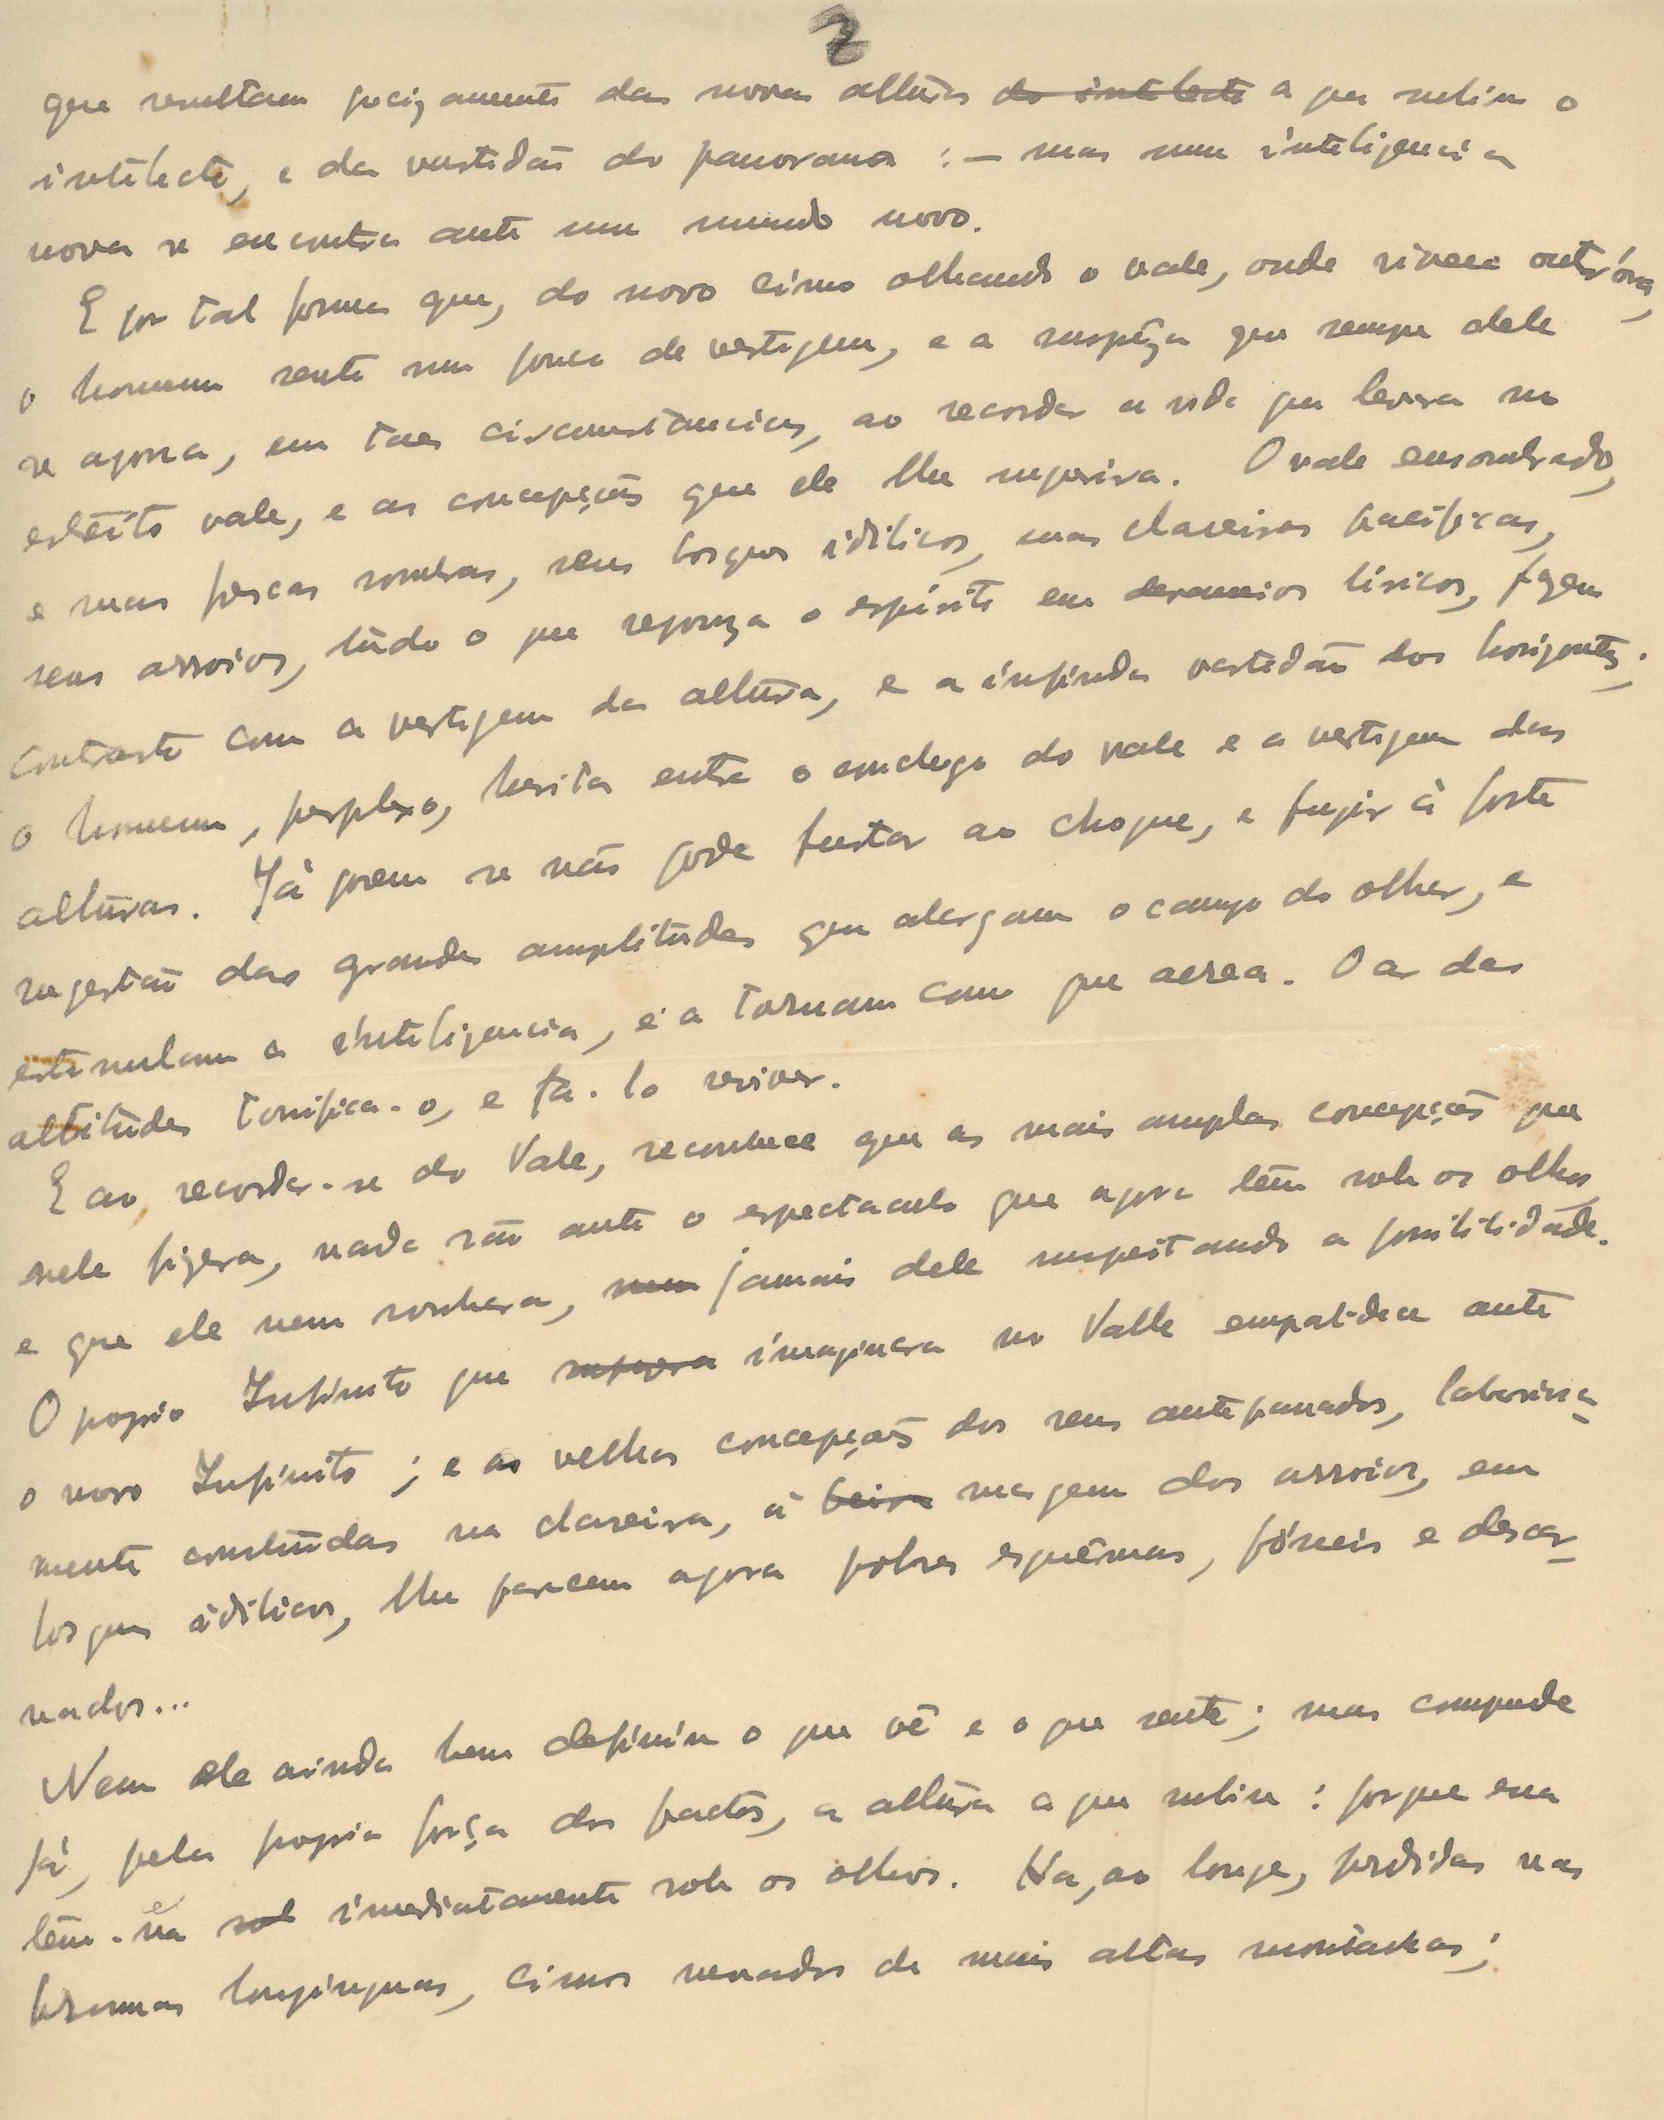 2
que resultam precizamente das novas altúras do intelecto a que subiu o
intelecto, e da vastidão do panorama : – mas uma inteligencia
nova se encontra ante um mundo novo.
E por tal forma que, do novo cimo olhando o vale, onde vivera outr'óra,
o homem sente um pouco de vertigem, e a surprêza que sempre dele
se apossa, em taes circumstancias, ao recordar a vida que levara no
estreito vale, e as concepções que ele lhe sugerira. O vale ensombrado,
e suas frescas sombras, seus bosques idilicos, suas clareiras pacificas,
seus arroios, túdo o que repouza o espirito em devaneios líricos, fazem
contraste com a vertigem da altúra, e a infinda vastidão dos horizontes;
o homem, perplexo, hesita entre o conchego do vale e a vertigem das
altúras. Já porem se não pode furtar ao choque, e fugir à forte
sugestão das grandes amplitúdes que alargam o campo do olhar, e
estimulam a inteligencia, e a tornam como que aerea. O ar das
altitúdes tonifica-o, e fa-lo reviver.
E ao recordar-se do Vale, reconhece que as mais amplas concepções que
nele fizera, nada são ante o espectaculo que agora têm sob os olhos,
e que ele nem sonhara, nem jamais dele suspeitando a possibilidade.
O proprio Infinito que supuzera imaginara no Valle empalidece ante
o novo Infinito ; e as velhas concepções dos seus antepassados, laboriosa-
mente construidas na clareira, á beira margem dos arroios, em
bosques idilicos, lhe parecem agora pobres esquêmas, fósseis e descar-
nados...
Nem ele ainda bem definiu o que vê e o que sente; mas compreende
já, pela propria força dos factos, a altúra a que subiu : porque essa
têm-na sob imediatamente sob os olhos. Ha, ao longe, perdidas nas
brumas longinquas, cimos nevados de mais altas montanhas;